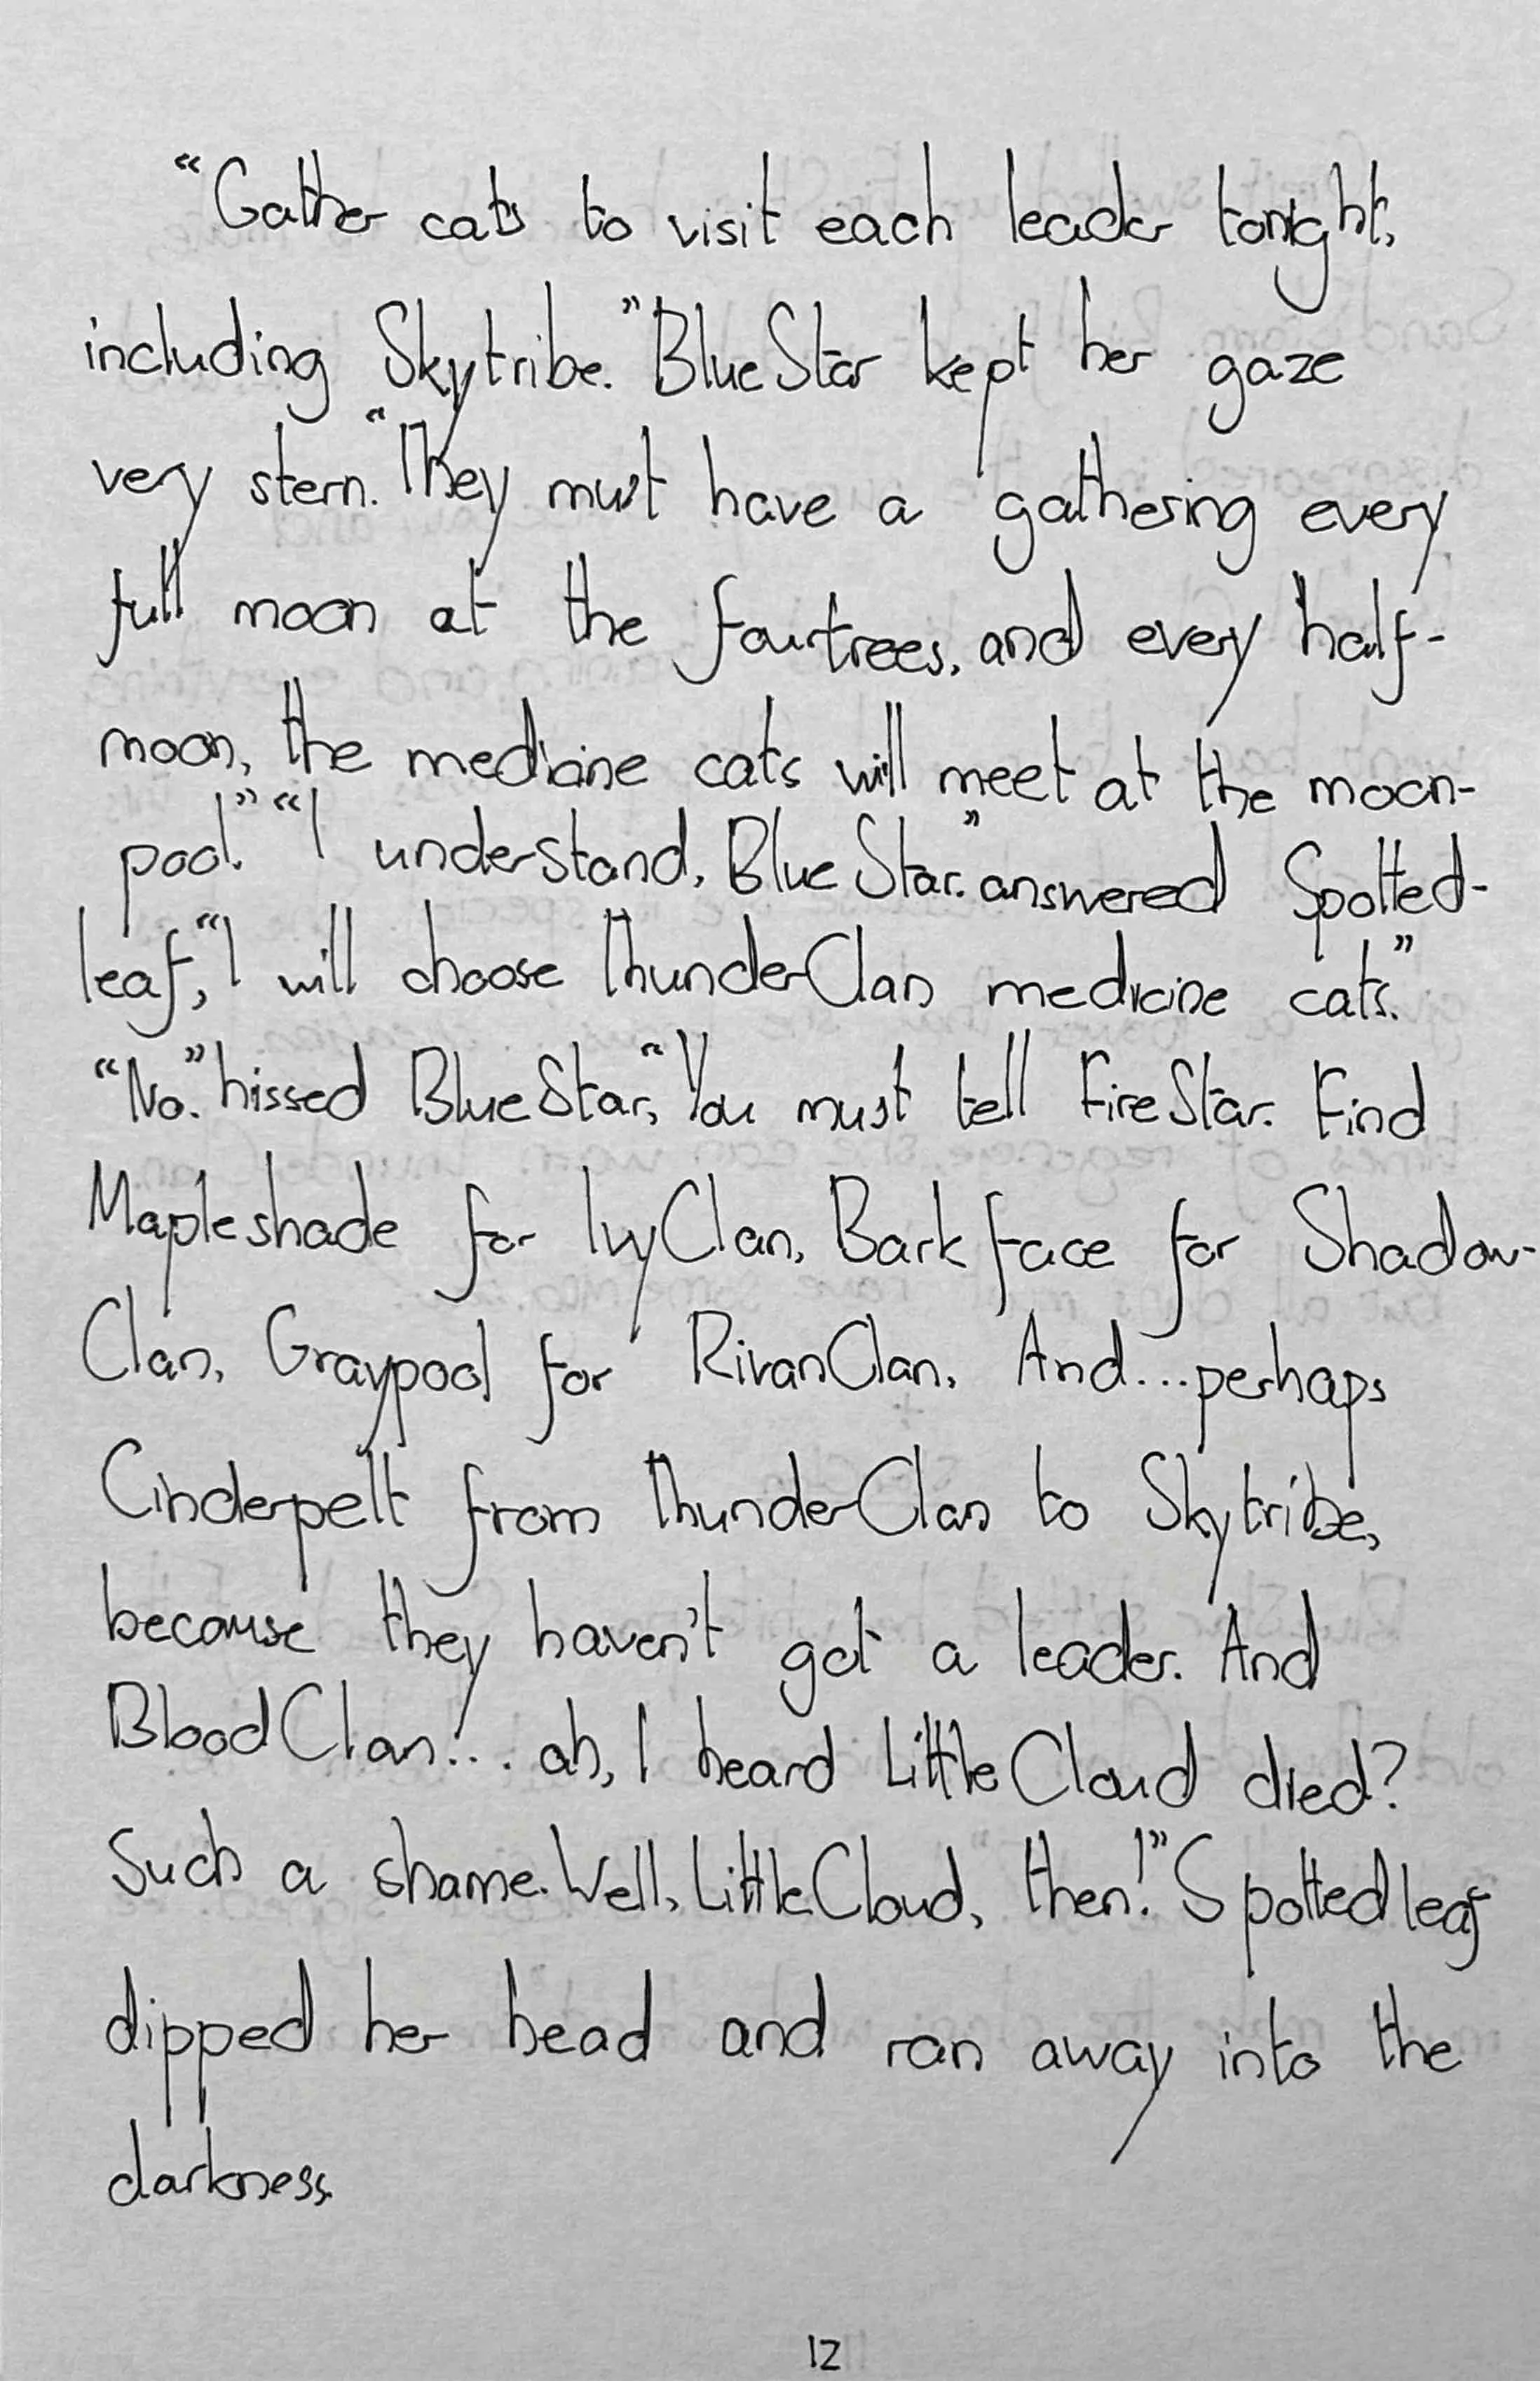 “Gather cats to visit each leader tonight,
including Skytribe.” BlueStar kept her gaze
very stern. “They must have a gathering every
full moon at the fourtrees, and every half-
moon, the medicine cats will meet at the moon-
pool.” “I understand, BlueStar.” answered Spotted-
leaf, “I will choose ThunderClan medicine cats.”
“No.” hissed BlueStar, “You must tell FireStar. Find
Mapleshade for IvyClan, Barkface for Shadow-
Clan, Graypool for RivanClan. And...perhaps
Cinderpelt from ThunderClan to Skytribe,
because they haven't got a leader. And
BloodClan!.. ah, I heard LittleCloud died?
Such a shame. Well, LittleCloud, then!” Spottedleaf
dipped her head and ran away into the
darkness.
12